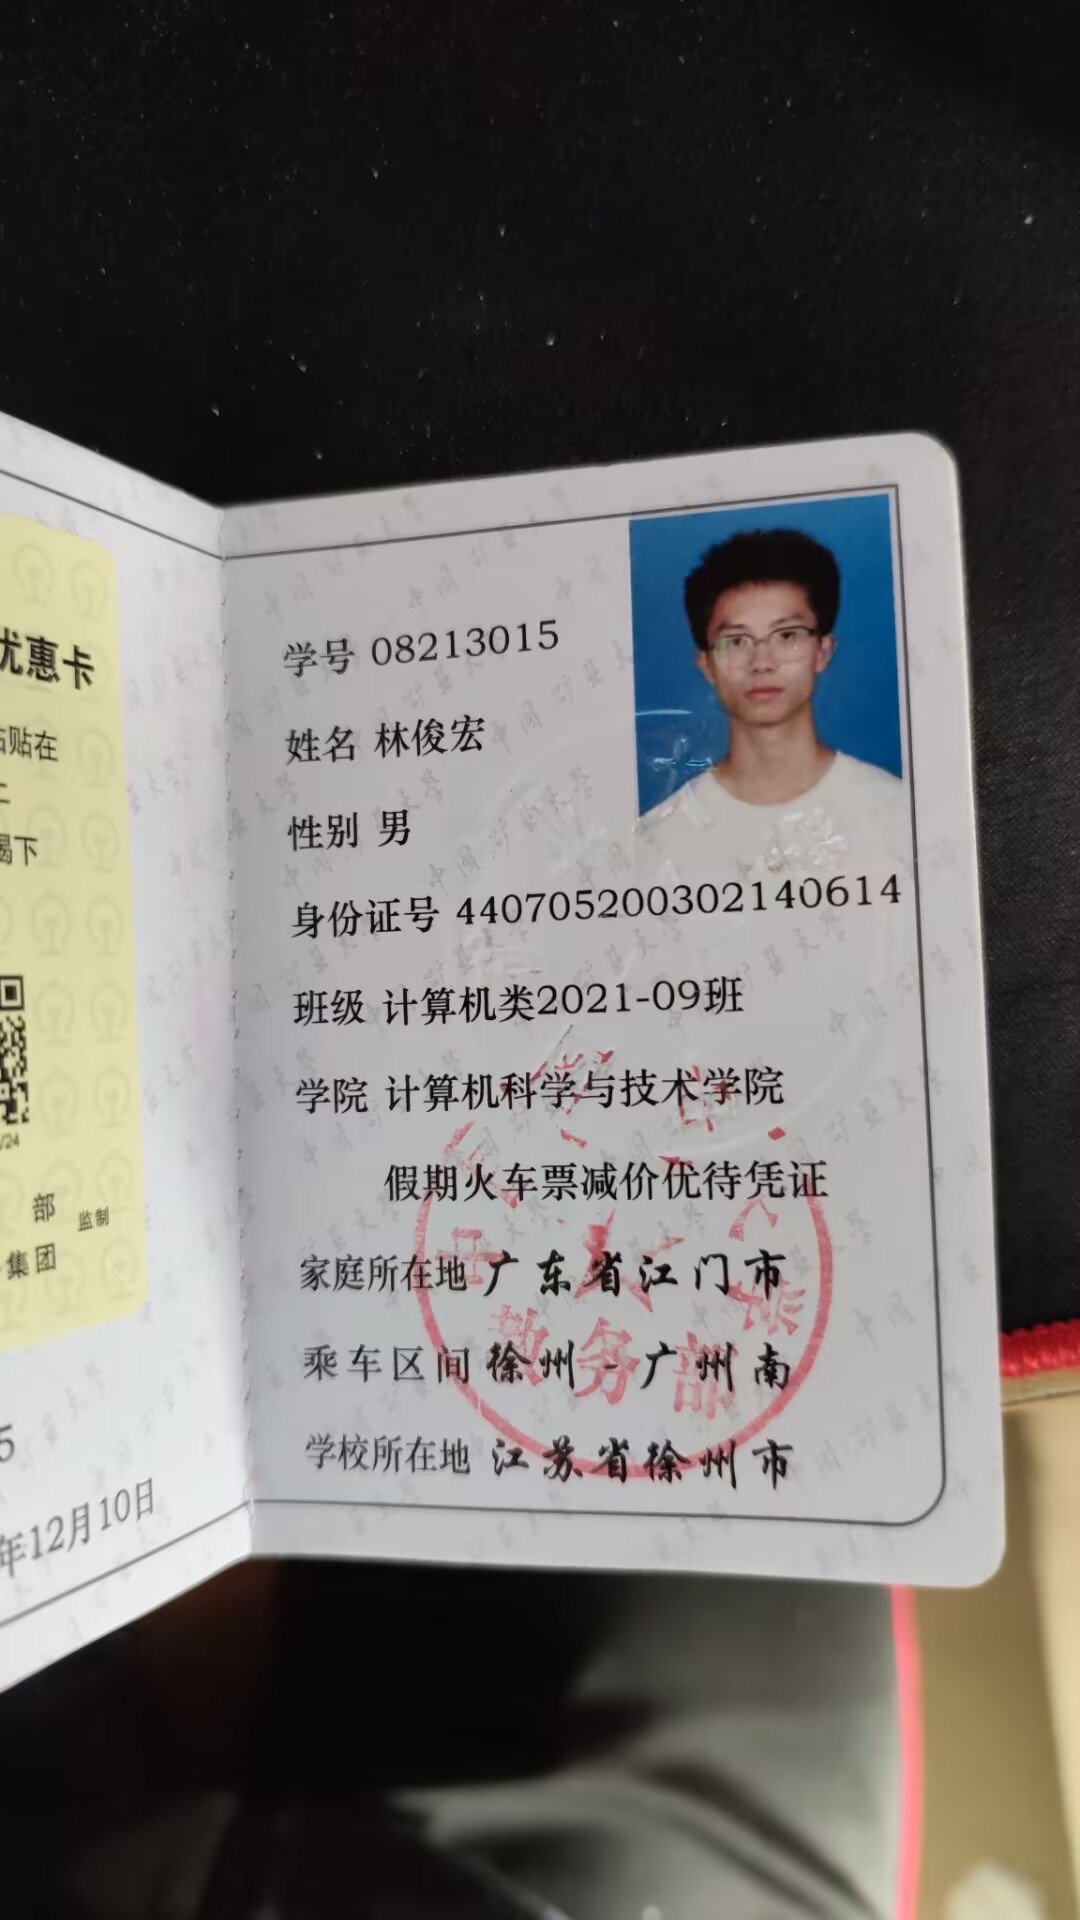 优惠卡
贴在
揭下
/24
部 监制
集团
5
年12月10日
学号 08213015
姓名 林俊宏
性别 男
身份证号 440705200302140614
班级 计算机类2021-09班
学院 计算机科学与技术学院
假期火车票减价优待凭证
家庭所在地 广东省江门市
乘车区间 徐州-广州南
学校所在地 江苏省徐州市
教务部